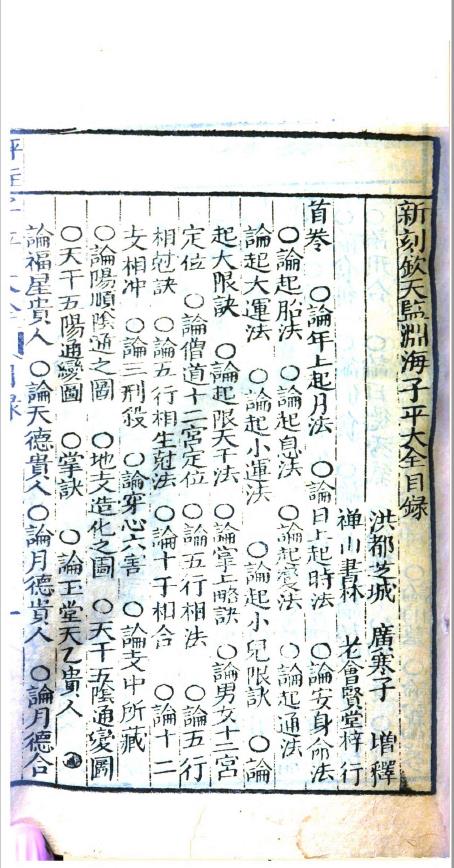 新刻欽天監淵海子平大全目錄
洪都芝城 廣寒子 增釋
禅山書林 老會賢堂梓行
首卷 ○論年上起月法 ○論日上起時法 ○論安身命法
○論起胎法 ○論起息法 ○論起變法 ○論起通法
論起大運法 ○論起小運法 ○論起小兒限訣 ○論
起大限訣 ○論起限天干法 ○論掌上畧訣 ○論男女十二宮
定位 ○論僧道十二宮定位 ○論五行相法 ○論五行
相尅訣 ○論五行相生尅法 ○論十干相合 ○論十二
支相冲 ○論三刑殺 ○論穿心六害 ○論支中所藏
○論陽順陰逆之圖 ○地支造化之圖 ○天干五陰通變圖
○天干五陽通變圖 ○掌訣 ○論玉堂天乙貴人
論福星貴人 ○論天德貴人 ○論月德貴人 ○論月德合
目錄 一